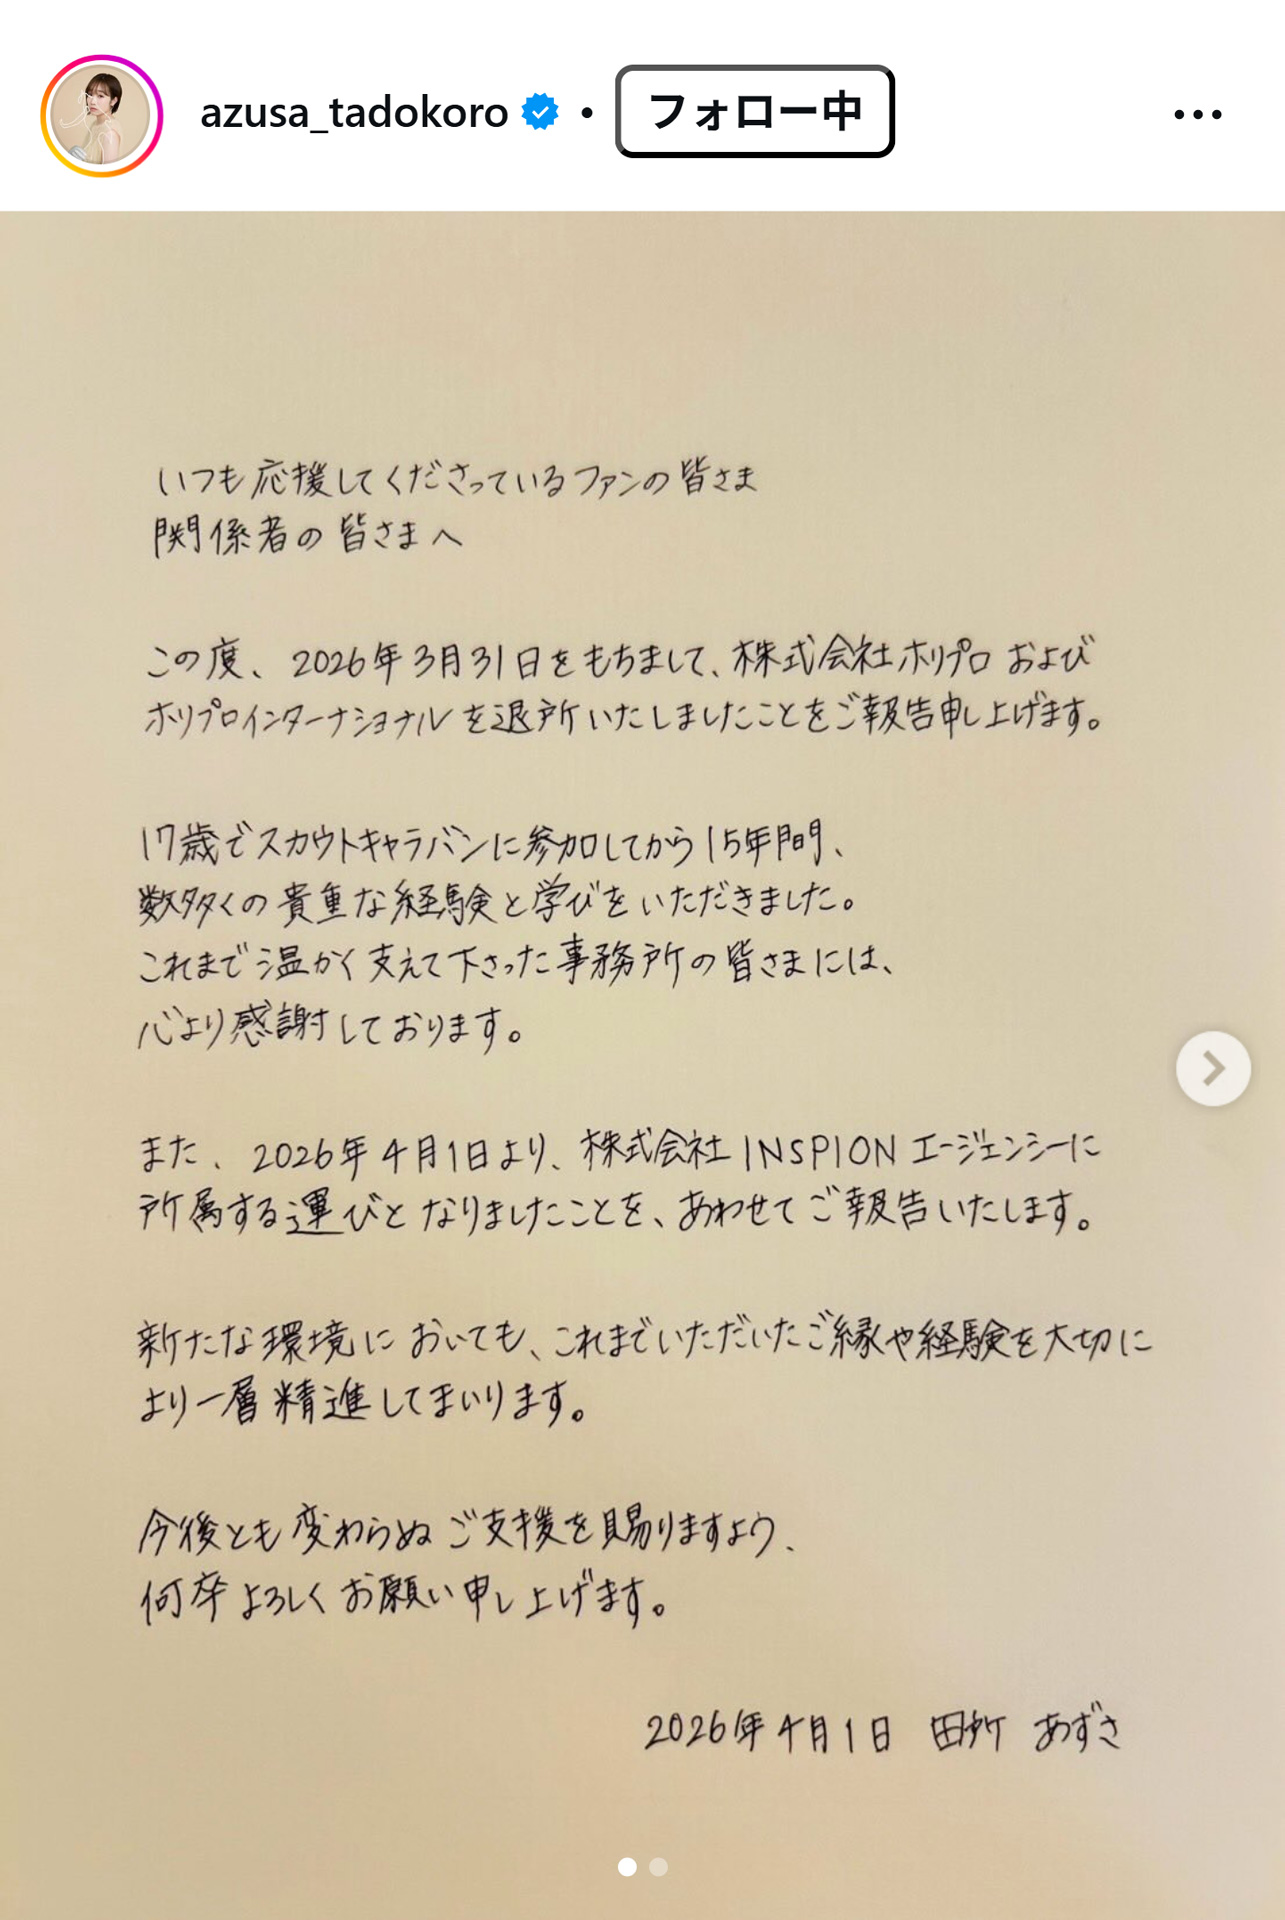 azusa_tadokoro • フォロー中
いつも応援してくださっているファンの皆さま
関係者の皆さまへ
この度、2026年3月31日をもちまして、株式会社ホリプロおよび
ホリプロインターナショナルを退所いたしましたことをご報告申し上げます。
17歳でスカウトキャラバンに参加してから15年間、
数多くの貴重な経験と学びをいただきました。
これまで温かく支えて下さった事務所の皆さまには、
心より感謝しております。
また、2026年4月1日より、株式会社INSPIONエージェンシーに
所属する運びとなりましたことを、あわせてご報告いたします。
新たな環境においても、これまでいただいたご縁や経験を大切に
より一層精進してまいります。
今後とも変わらぬご支援を賜りますよう、
何卒よろしくお願い申し上げます。
2026年4月1日 田所 あずさ